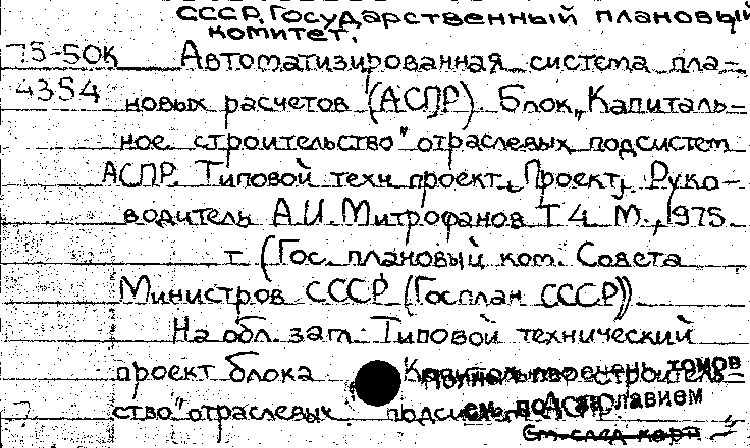 СССР. Государственный плановый
комитет.
75-50К Автоматизированная система пла-
4354 новых расчетов (АСПР). Блок „Капиталь-
ное строительство" отраслевых подсистем
АСПР. Типовой техн. проект. [Проект], Руко-
водитель А.И. Митрофанов Т 4 М., 1975
т (Гос. плановый ком. Совета
Министров СССР (Госплан СССР))
На обл. загл.: Типовой технический
проект блока Капитальное строитель-
Полный перечень томов
ство" отраслевых подсистем АСПР
см. под заглавием
См. след. карт